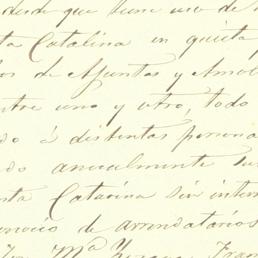 desde que tiene uso de
ta Catalina en quieta
os de Apuntas y Amol
entre uno y otro, todo
do á distintas persona
do anualmente su
nta Catarina sin inter
enocio de arrendatarios